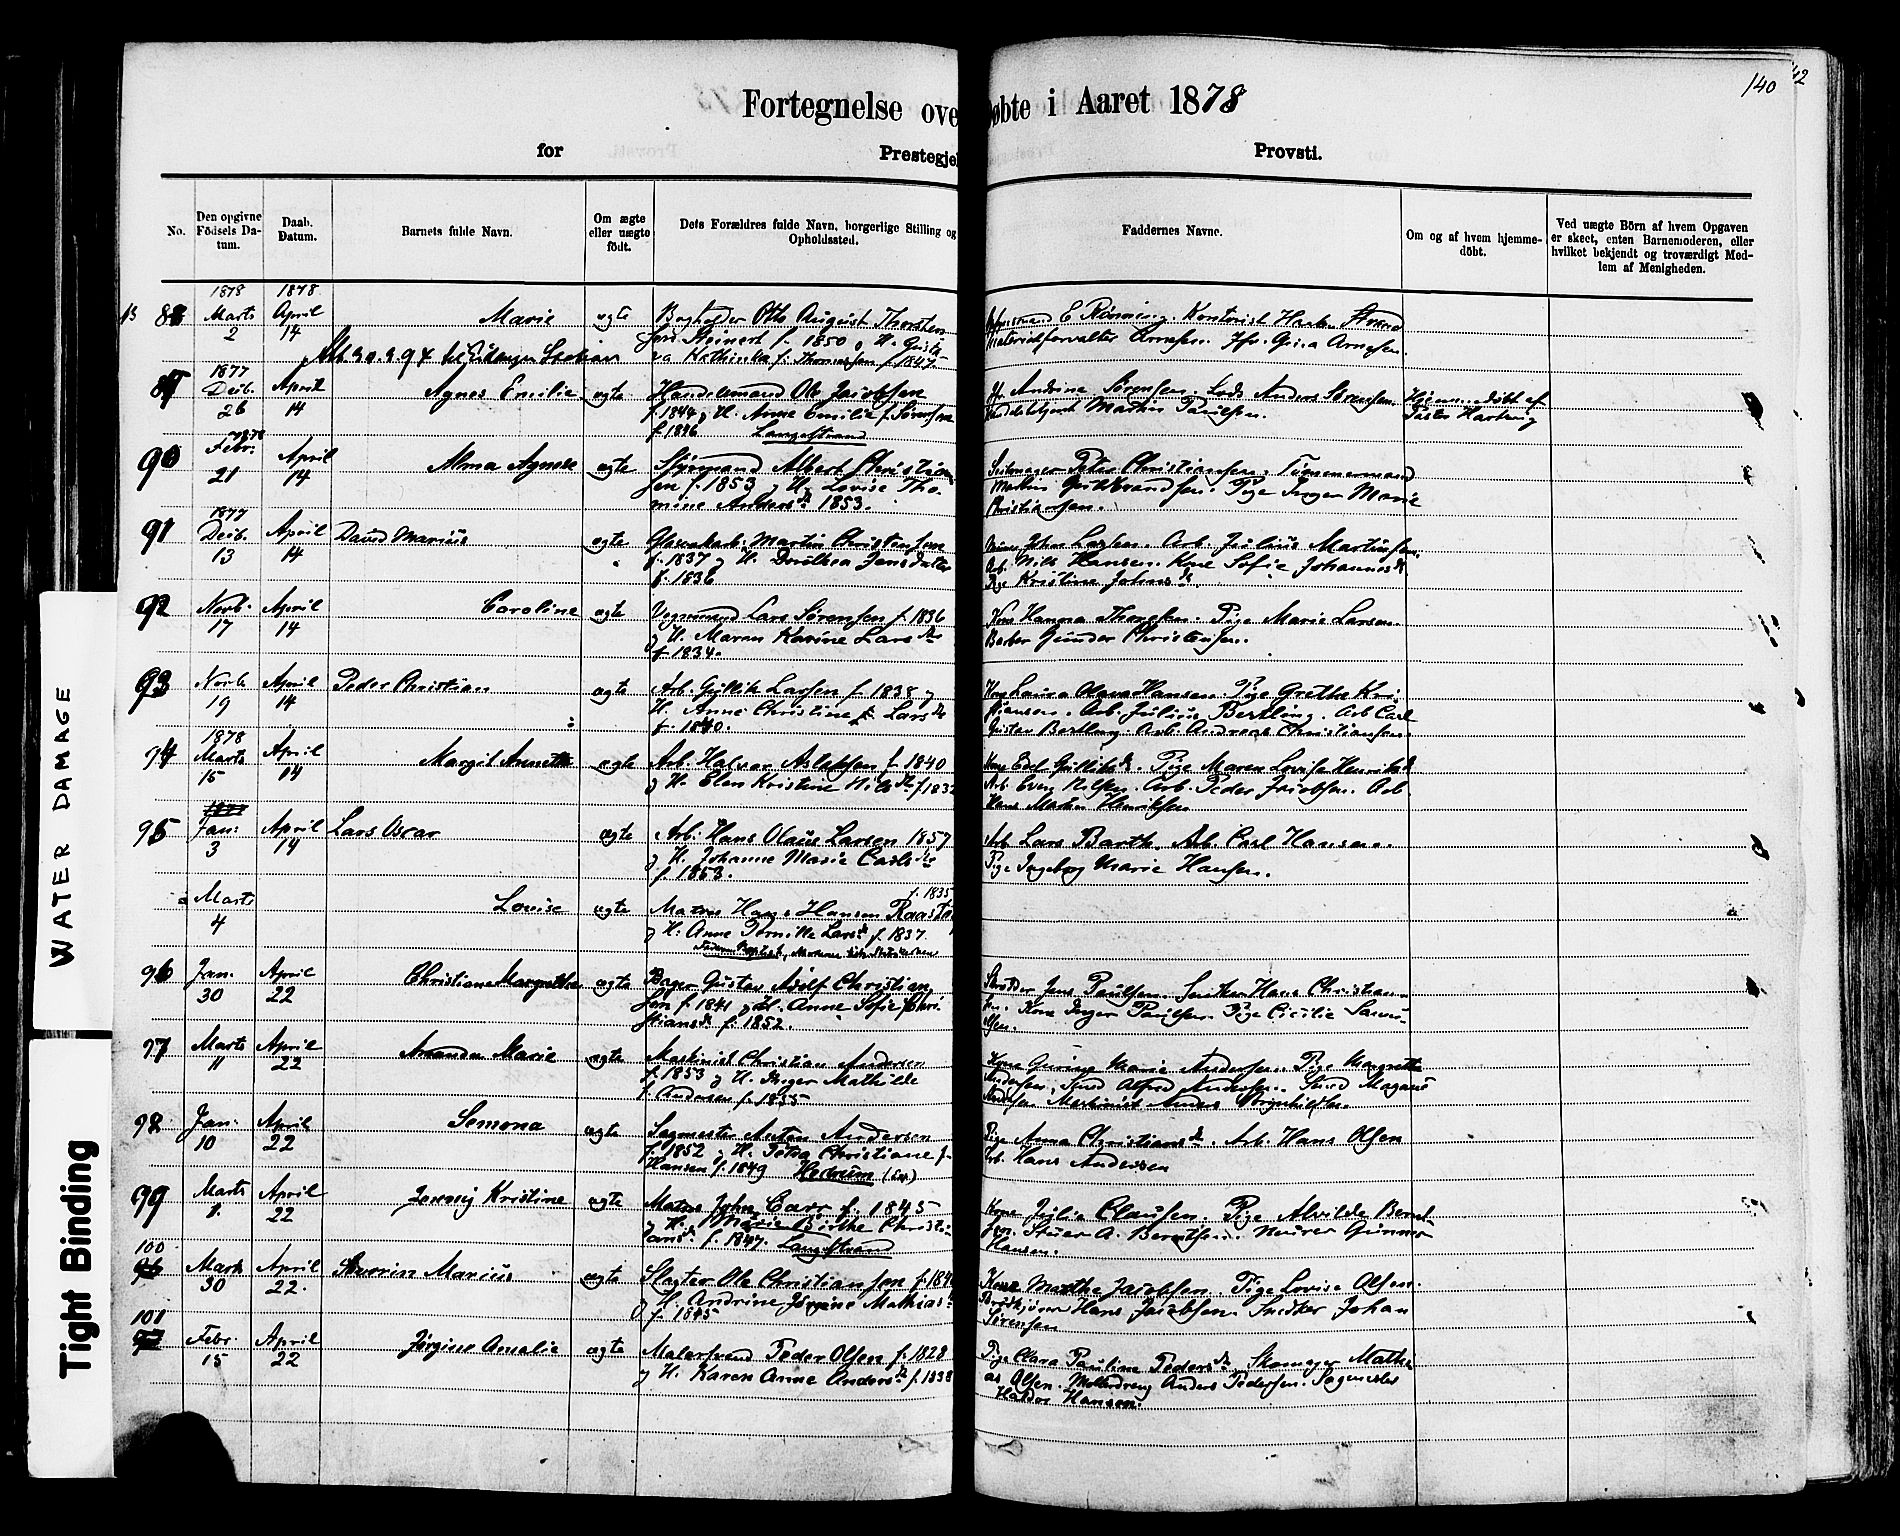 140
42
Fortegnelse ove
øbte i Aaret 1878
for
Prestegjel
Provsti.
No.
Den opgivne Födsels Datum.
Daab. Datum.
Barnets fulde Navn.
Om ægte eller uægte födt.
Dets Forældres fulde Navn, borgerlige Stilling og Opholdssted.
Faddernes Navne.
Om og af hvem hjemmedöbt.
Ved uægte Börn af hvem Opgaven er skeet, enten Barnemoderen, eller hvilket bekjendt og troværdigt Medlem af Menigheden.
1878 1878
Marts April Marie ægte Bogholder Otto August Thorsten
2 14 sen Steinert f. 1850 og H.
f. Thomassen f. 1847.
E Rönning. Kontorist
Materialforvalter Arnesen. Jfr. Gina Arnesen.
1877
Decb. April Agnes Emilie ægte Handelsmand Ole Jacobsen
26 14 f. 1844 og H. Anne Emilie f. Sörensen
f. 1846 Langestrand
Andrine Sörensen. Lods Anders Sörensen
Martin Paulsen.
Hjemmedöbt af
Pastor Hartvig
1878
90 Febr. April Alma Agnes ægte Styrmand Albert Christian
21 14 sen f. 1853 og H. Lovise Tho-
mine Andersdr 1853.
Seilmager Peter Christiansen. Tömmermand
Mathis Guldbrandsen. Pige Inger Marie
Christiansen.
1877
91 Decb. April David Marius ægte Glasarb. Martin Christensen
13 14 f. 1837 og H. Dorothea Jansdatter
f. 1836
John Larsen. Arb. Julius Martinsen.
Arb. Nils Hansen. Kone Sofie Johannesdr
Pige Kristine Johnsdr
92 Novb. April Caroline ægte Vognmand Lars Sörensen f. 1836
17 14 og H. Maren Karine Larsdtr
f. 1834.
Kone Hanna Thorsen. Pige Marie Larsen.
Gunder Christensen.
93 Novb April Peder Christian ægte Arb. Gullik Larsen f. 1838 og
19 14 H. Anne Christine f. Larsdr
f. 1840.
Kone Laura Olava Hansen. Pige Grethe Kri
stiansen. Arb. Julius Bertling. Arb Carl
Gustav Bertling. Arb. Andreas Christiansen.
1878
94 Marts April Margit Annette ægte Arb. Halvor Aslaksen f. 1840
15 14 og H. Elen Kristine Nilsdr f 1832
Kone Edel Gulliksdr. Pige Maren Lovise Henriksdr
Arb. Even Nilsen. Arb. Peder Jacobsen. Arb
Hans Martin Henriksen
95 Jan: April Lars Oscar ægte Arb. Hans Olaus Larsen 1857
3 14 og H. Johanne Marie Carlsdtr
f. 1853.
Arb Lars Barth. Arb. Carl Hansen.
Pige Ingeborg Marie Hansen.
Marts Lovise ægte Matros Hans Hansen Raastad
f. 1835
4 og H. Anne Pernille Larsdr f. 1837.
96 Jan. April Christiane Margrethe ægte Bager Gustav Adolf Christian
30 22 sen f. 1841 og H. Anne Sofie Chri-
stiansdr f. 1852.
Skrædder Jens Paulsen. Snekker Hans Christian
sen. Kone Inger Paulsen. Pige Cicilie Samu-
elsen.
97 Marts April Amanda Marie ægte Maskinist Christian Andersen
11 22 f. 1853 og H. Inger Mathilde
f. Andersen f. 1855
Kone Gurine Marie Andersen. Pige Margrethe
Andersen. Smed Alfred Andersen. Smed Magnus
Andersen Maskinist Anders
98 Jan. April Semona ægte Sagmester Anton Andersen
10 22 f. 1852 og H. Petra Christiane f.
Hansen f. 1849 Hedrum
Pige Anna Christiansdr. Arb. Hans Olsen
Arb. Hans Andersen
99 Marts April Jenny Kristine ægte Matros John Carr f. 1845
1. 22 og H. Marie Birthe Christi
ansdr. f. 1847. Langestrand
Kone Julie Clausen. Pige Alvilde Bernt-
sen. Stuer A. Berntsen. Murer Gunner
Hansen.
100
96 Marts April Severin Marius ægte Slagter Ole Christiansen f.
30 22. og H. Andrine Jörgine Mathiasdr
f. 1845
Kone Marthe Jacobsen. Pige Lovise Olsen.
Hans Jacobsen. Snedker Johan
Sörensen
101
97 Febr. April Jörgine Amalie ægte Malersvend Peder Olsen f. 1828
15 22 og H. Karen Anne Andersdr f. 1838
Pige Clara Pauline Pedersdr. Skomager Mathi
as Olsen. Anders Pedersen. Sagmester
Haldor Hansen.
WATER DAMAGE
Tight Binding